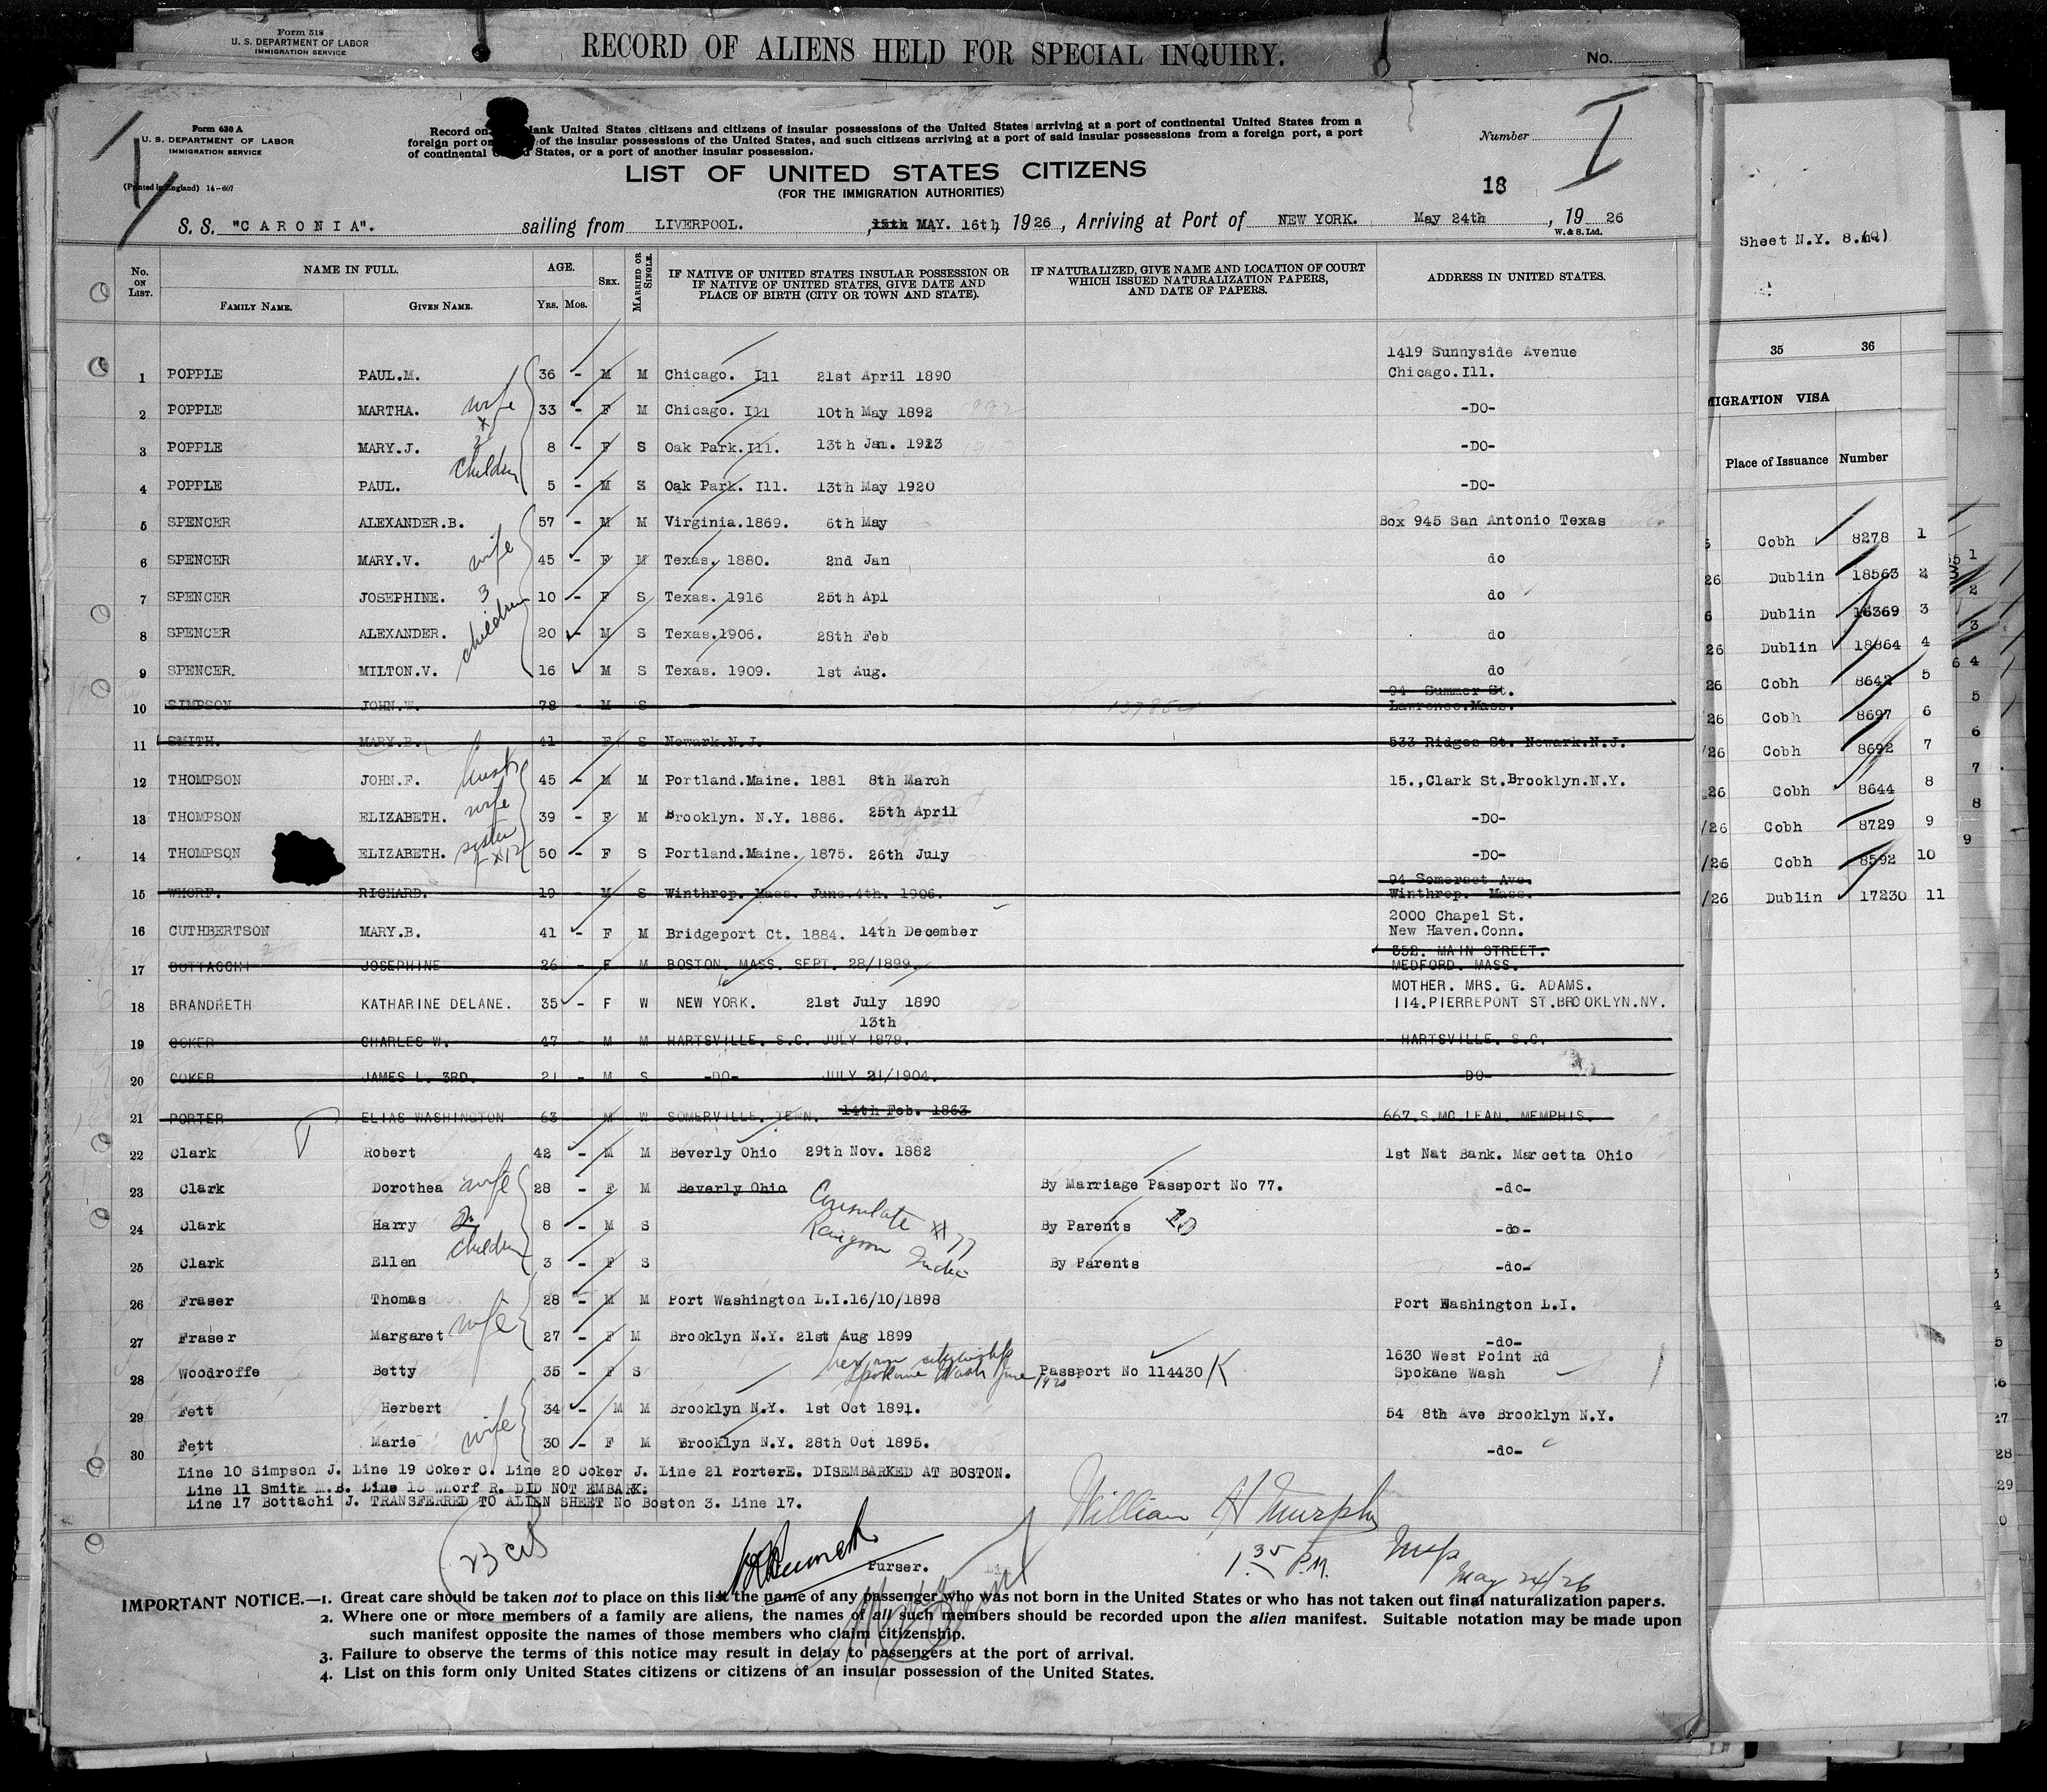 Form 518
U. S. DEPARTMENT OF LABOR
IMMIGRATION SERVICE
RECORD OF ALIENS HELD FOR SPECIAL INQUIRY.
No.
Form 630 A
U. S. DEPARTMENT OF LABOR
IMMIGRATION SERVICE
(Printed in England) 14-607
Record on lank United States citizens and citizens of insular possessions of the United States arriving at a port of continental United States from a
foreign port or of the insular possessions of the United States, and such citizens arriving at a port of said insular possessions from a foreign port, a port
of continental United States, or a port of another insular possession.
Number I
LIST OF UNITED STATES CITIZENS
(FOR THE IMMIGRATION AUTHORITIES)
18
S. S. "CARONIA". sailing from LIVERPOOL. , 15th MAY. 16th, 1926, Arriving at Port of NEW YORK. May 24th , 19 26
W. & S. Ltd.
No. ON LIST. NAME IN FULL. FAMILY NAME. GIVEN NAME. AGE. YRS. MOS. SEX. MARRIED OR SINGLE. IF NATIVE OF UNITED STATES INSULAR POSSESSION OR IF NATIVE OF UNITED STATES, GIVE DATE AND PLACE OF BIRTH (CITY OR TOWN AND STATE). IF NATURALIZED, GIVE NAME AND LOCATION OF COURT WHICH ISSUED NATURALIZATION PAPERS, AND DATE OF PAPERS. ADDRESS IN UNITED STATES.
1419 Sunnyside Avenue
1 POPPLE PAUL.M. 36 - M M Chicago. Ill 21st April 1890 Chicago.Ill.
2 POPPLE MARTHA. wife 33 - F M Chicago. Ill 10th May 1892 -DO-
3 POPPLE MARY.J. 2 children 8 - F S Oak Park.Ill. 13th Jan. 1923 -DO-
4 POPPLE PAUL. 5 - M S Oak Park. Ill. 13th May 1920 -DO-
5 SPENCER ALEXANDER.B. 57 - M M Virginia.1869. 6th May Box 945 San Antonio Texas
6 SPENCER MARY.V. wife 45 - F M Texas. 1880. 2nd Jan do
7 SPENCER JOSEPHINE. 3 children 10 - F S Texas. 1916 25th Apl do
8 SPENCER ALEXANDER. 20 - M S Texas.1906. 28th Feb do
9 SPENCER. MILTON.V. 16 M S Texas. 1909. 1st Aug. do
94 Summer St.
10 SIMPSON JOHN.W. 78 - M S Lawrence.Mass.
11 SMITH. MARY.B. 41 - F S Newark.N.J. 533 Ridge St. Newark.N.J.
12 THOMPSON JOHN.F. husb 45 - M M Portland.Maine. 1881 8th March 15.,Clark St.Brooklyn.N.Y.
13 THOMPSON ELIZABETH. wife 39 - F M Brooklyn. N.Y. 1886. 25th April -DO-
14 THOMPSON ELIZABETH. sister 50 - F S Portland.Maine. 1875. 26th July -DO-
94 Somerset Ave.
15 WHORF. RICHARD. 19 - M S Winthrop. Mass. June.4th. 1906. Winthrop. Mass.
2000 Chapel St.
16 CUTHBERTSON MARY.B. 41 - F M Bridgeport Ct. 1884. 14th December New Haven.Conn.
352. MAIN STREET.
17 BOTTACCHI JOSEPHINE 26 - F M BOSTON. MASS. SEPT. 28/1899. MEDFORD. MASS.
MOTHER. MRS. G. ADAMS.
18 BRANDRETH KATHARINE DELANE. 35 - F W NEW YORK. 21st July 1890 114.PIERREPONT ST.BROOKLYN.NY.
13th
19 COKER CHARLES W. 47 - M M HARTSVILLE. S.C. JULY 1879. HARTSVILLE. S.C.
20 COKER JAMES L. 3RD. 21 - M S -DO- JULY 21/1904. -DO-
21 PORTER ELIAS WASHINGTON 63 M W SOMERVILLE. TENN. 14th Feb. 1863 667.S.MCLEAN. MEMPHIS.
22 Clark Robert 42 - M M Beverly Ohio 29th Nov. 1882 1st Nat Bank. Marcetta Ohio
23 Clark Dorothea wife 28 - F M Beverly Ohio By Marriage Passport No 77. -do-
24 Clark Harry 2 children 8 - M S Consulate Rangoon India #77 By Parents -do-
25 Clark Ellen 3 - F S By Parents -do-
26 Fraser Thomas 28 - M M Port Washington L.I.16/10/1898 Port Washington L.I.
27 Fraser Margaret wife 27 - F M Brooklyn N.Y. 21st Aug 1899 -do-
1630 West Point Rd
28 Woodroffe Betty 35 - F S her own citizenship Spokane Wash June 1920 Passport No 114430 Spokane Wash
29 Fett Herbert 34 - M M Brooklyn N.Y. 1st Oct 1891. 54 8th Ave Brooklyn N.Y.
30 Fett Marie wife 30 - F M Brooklyn N.Y. 28th Oct 1895. -do-
Line 10 Simpson J. Line 19 Coker C. Line 20 Coker J. Line 21 PorterE. DISEMBARKED AT BOSTON.
Line 11 Smith M.B. Line 15 Whorf R. DID NOT EMBARK.
Line 17 Bottachi J. TRANSFERRED TO ALIEN SHEET No Boston 3. Line 17.
William H Murphy
Insp
23 cit
Purser.
1.35 P.M.
May 24/26
IMPORTANT NOTICE.—1. Great care should be taken not to place on this list the name of any passenger who was not born in the United States or who has not taken out final naturalization papers.
2. Where one or more members of a family are aliens, the names of all such members should be recorded upon the alien manifest. Suitable notation may be made upon
such manifest opposite the names of those members who claim citizenship.
3. Failure to observe the terms of this notice may result in delay to passengers at the port of arrival.
4. List on this form only United States citizens or citizens of an insular possession of the United States.
Sheet N.Y. 8.
35 36
MIGRATION VISA
Place of Issuance Number
Cobh 8278 1
26 Dublin 18563 2
6 Dublin 18369 3
26 Dublin 18864 4
26 Cobh 8642 5
/26 Cobh 8697 6
/26 Cobh 8692 7
26 Cobh 8644 8
/26 Cobh 8729 9
/26 Cobh 8592 10
/26 Dublin 17230 11